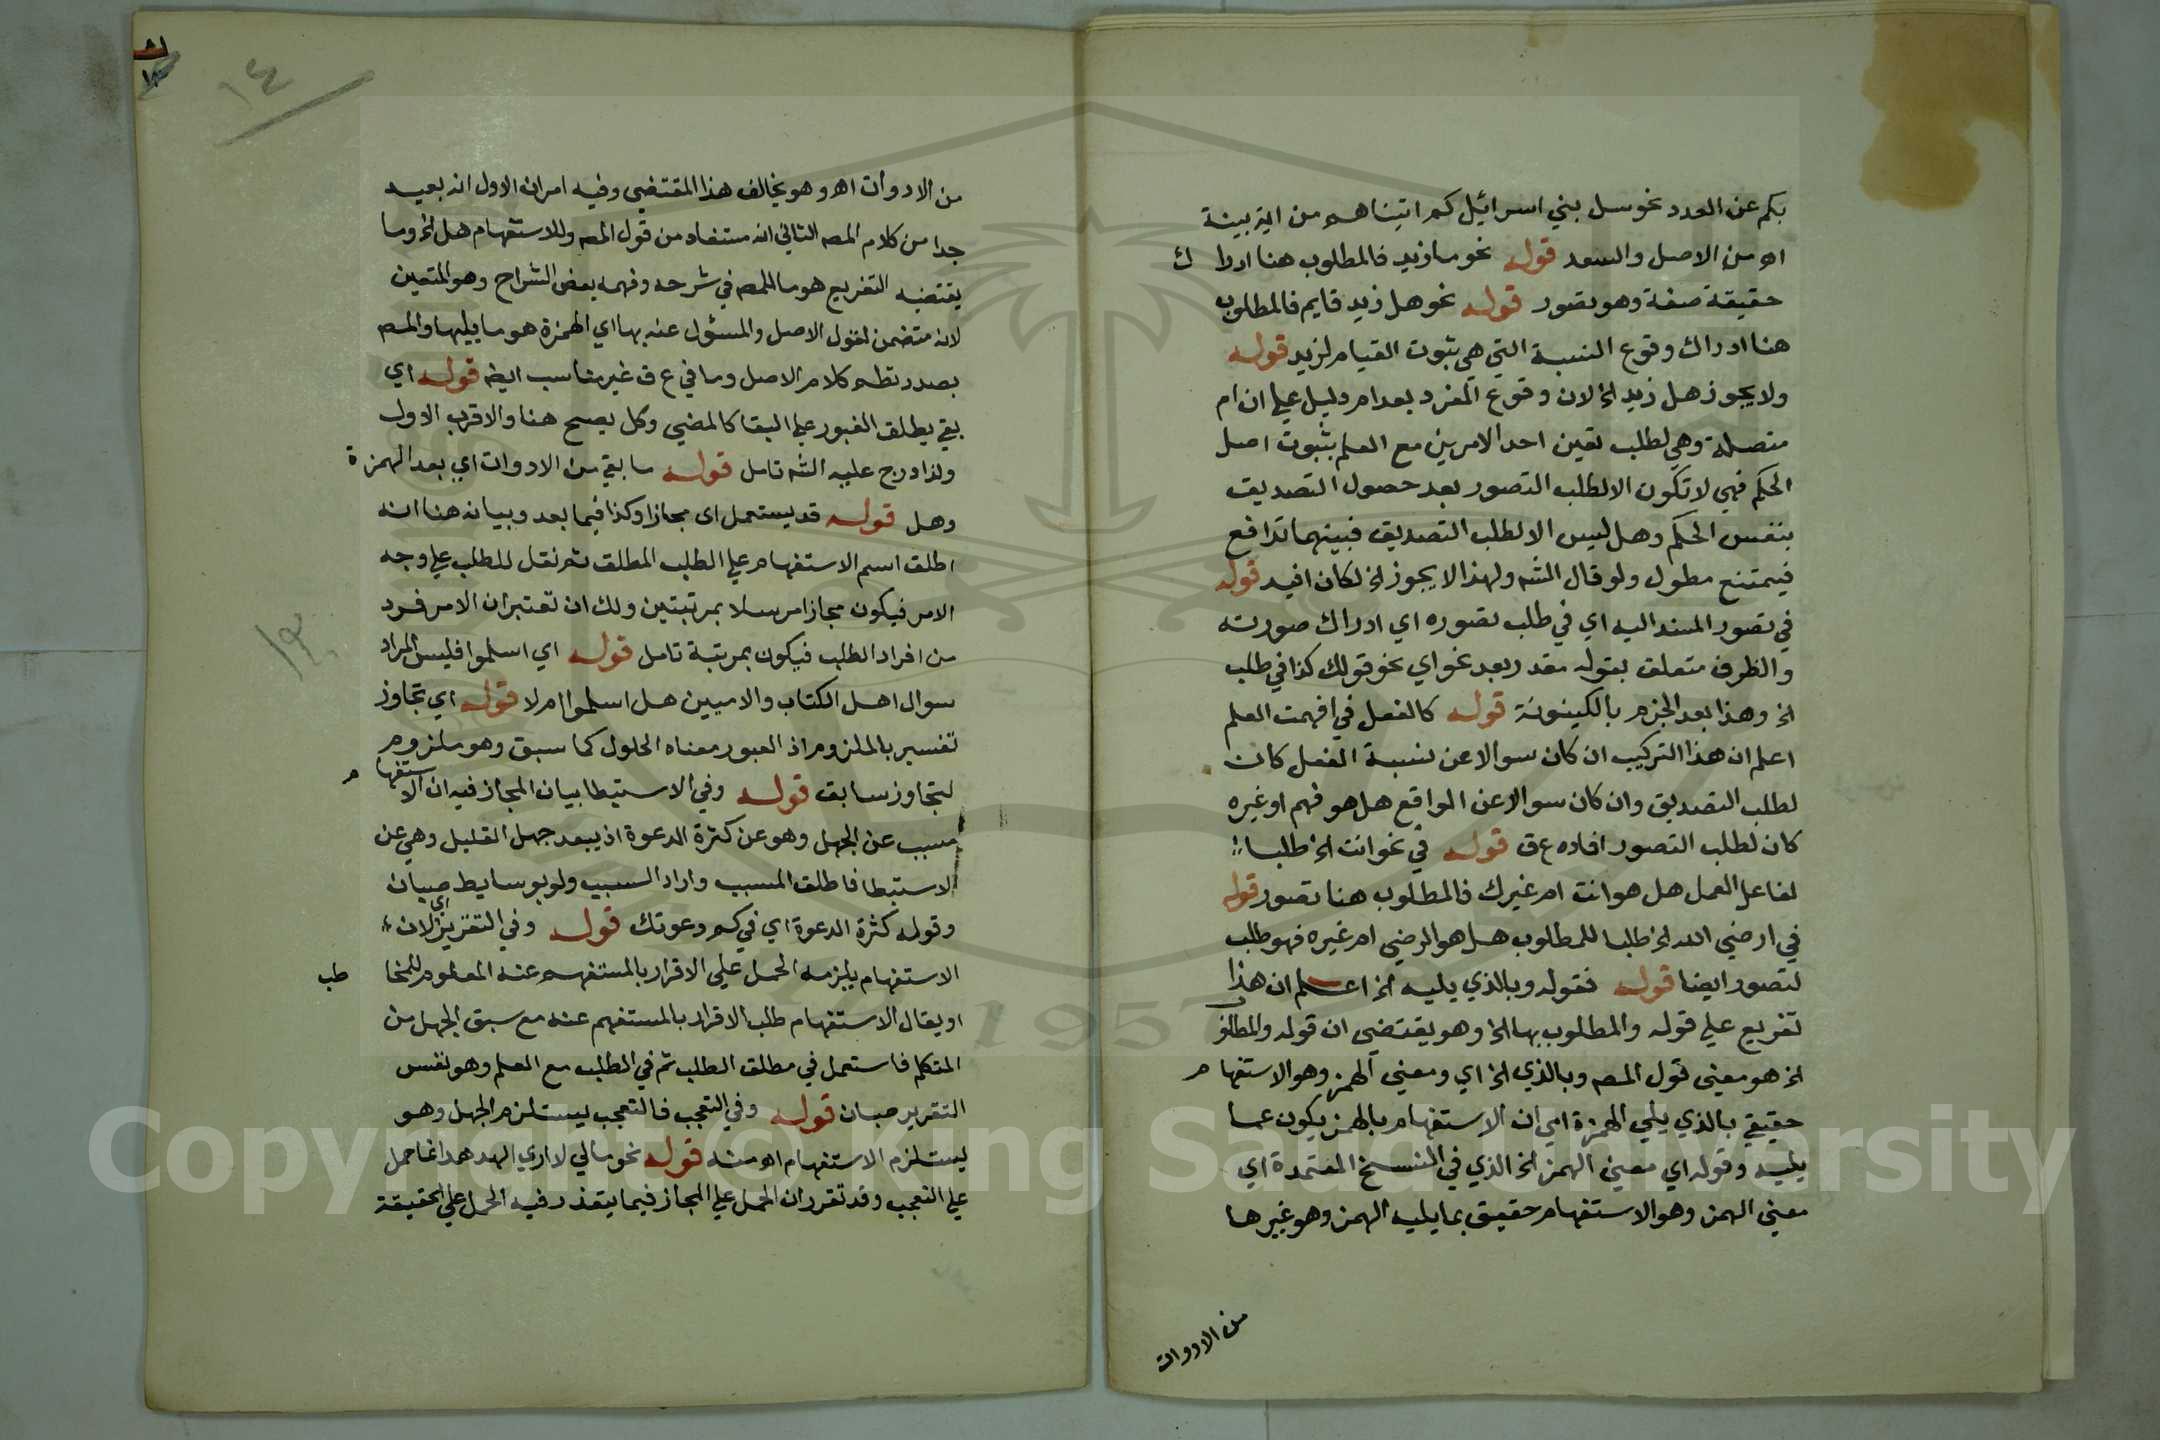 بكم عن العدد نحو سل بني اسرائيل كم اتيناهم من اية بينة
اه من الاصل والسعد قوله نحو ما زيد فالمطلوب هنا ادراك
حقيقة صفة وهو تصور قوله نحو هل زيد قايم فالمطلوب
هنا ادراك وقوع النسبة التي هي ثبوت القيام لزيد قوله
ولا يجوز هل زيد الخ لان وقوع المفرد بعد ام دليل علي ان ام
متصلة وهي لطلب تعين احد الامرين مع العلم بثبوت اصل
الحكم فهي لا تكون الا لطلب التصور بعد حصول التصديق
بنفس الحكم وهل ليس الا لطلب التصديق فبينهما تدافع
فيمتنع مطول ولو قال الشه ولهذا لا يجوز الخ لكان افيد قوله
في تصور المسند اليه اي في طلب تصوره اي ادراك صورته
والظرف متعلق بقوله مقدر بعد نحو اي نحو قولك كذا في طلب
الخ وهذا بعد الجزم بالكينونة قوله كالفعل في افهمت العلم
اعلم ان هذا التركيب ان كان سوالا عن نسبة الفعل كان
لطلب التصديق وان كان سوالا عن الواقع هل هو فهم او غيره
كان لطلب التصور افاده ع ق قوله في نحو انت الخ طلبا
لفاعل العمل هل هو انت ام غيرك فالمطلوب هنا تصور قوله
في ارضي الله الخ طلبا للمطلوب هل هو الرضي ام غيره فهو طلب
لتصور ايضا قوله فقوله وبالذي يليه الخ اعلم ان هذا
تفريع علي قوله والمطلوب بها الخ وهو يقتضي ان قوله والمطلوب
الخ هو معني قول المصه وبالذي الخ اي ومعني الهمز وهو الاستفهام
حقيقي بالذي يلي الهمزة اي ان الاستفهام بالهمز يكون عما
يليه وقوله اي معني الهمز الخ الذي في النسخ المعتمدة اي
معني الهمز وهو الاستفهام حقيق بما يليه الهمز وهو غيرها
من الادوات
١٤
من الادوات اه وهو يخالف هذا المقتضي وفيه امران الاول انه بعيد
جدا من كلام المصه الثاني انه مستفاد من قول المصه وللاستفهام هل الخ وما
يقتضيه التفريع هو ما للمصه في شرحه وفهمه بعض الشراح وهو المتعين
لانه متضمن لقول الاصل والمسؤل عنه بها اي الهمزة هو ما يليها والمصه
بصدد نظم كلام الاصل وما في ع ق غير مناسب ايضه قوله اي
بقي يطلق الغبور علي البقا كالمضي وكل يصح هنا والاقرب الاول
ولذا درج عليه الشه تامل قوله ما بقي من الادوات اي بعد الهمزة
وهل قوله قد يستعمل اي مجازا وكذا فيما بعد وبيانه هنا انه
اطلق اسم الاستفهام علي الطلب المطلق ثم نقل للطلب علي وجه
الامر فيكون مجازا مرسلا بمرتبتين ولك ان تعتبر ان الامر فرد
من افراد الطلب فيكون بمرتبة تامل قوله اي اسلموا فليس المراد
سوال اهل الكتاب والاميين هل اسلموا ام لا قوله اي تجاوز
تفسير بالملزوم اذ العبور معناه الحلول كما سبق وهو ملزوم
لتجاوز سابق قوله وفي الاستبطا بيان المجاز فيه ان الاستفهام
مسبب عن الجهل وهو عن كثرة الدعوة اذ يبعد جهل القليل وهي عن
الاستبطا فاطلق المسبب واراد السبب ولو بوسايط صبان
وقوله كثرة الدعوة اي في كم دعوتك قوله وفي التقرير اي لان
الاستفهام يلزمه الحمل علي الاقرار بالمستفهم عنه المعلوم للمخاطب
او يقال الاستفهام طلب الاقرار بالمستفهم عنه مع سبق الجهل من
المتكلم فاستعمل في مطلق الطلب ثم في الطلب مع العلم وهو نفس
التقرير صبان قوله وفي التعجب فالتعجب يستلزم الجهل وهو
يستلزم الاستفهام اه منه قوله نحو مالي لا اري الهدهد انما حمل
علي التعجب وقد تقرر ان الحمل علي المجاز فيما يتعذر فيه الحمل علي الحقيقة
١٣
1957
Copyright © King Saud University